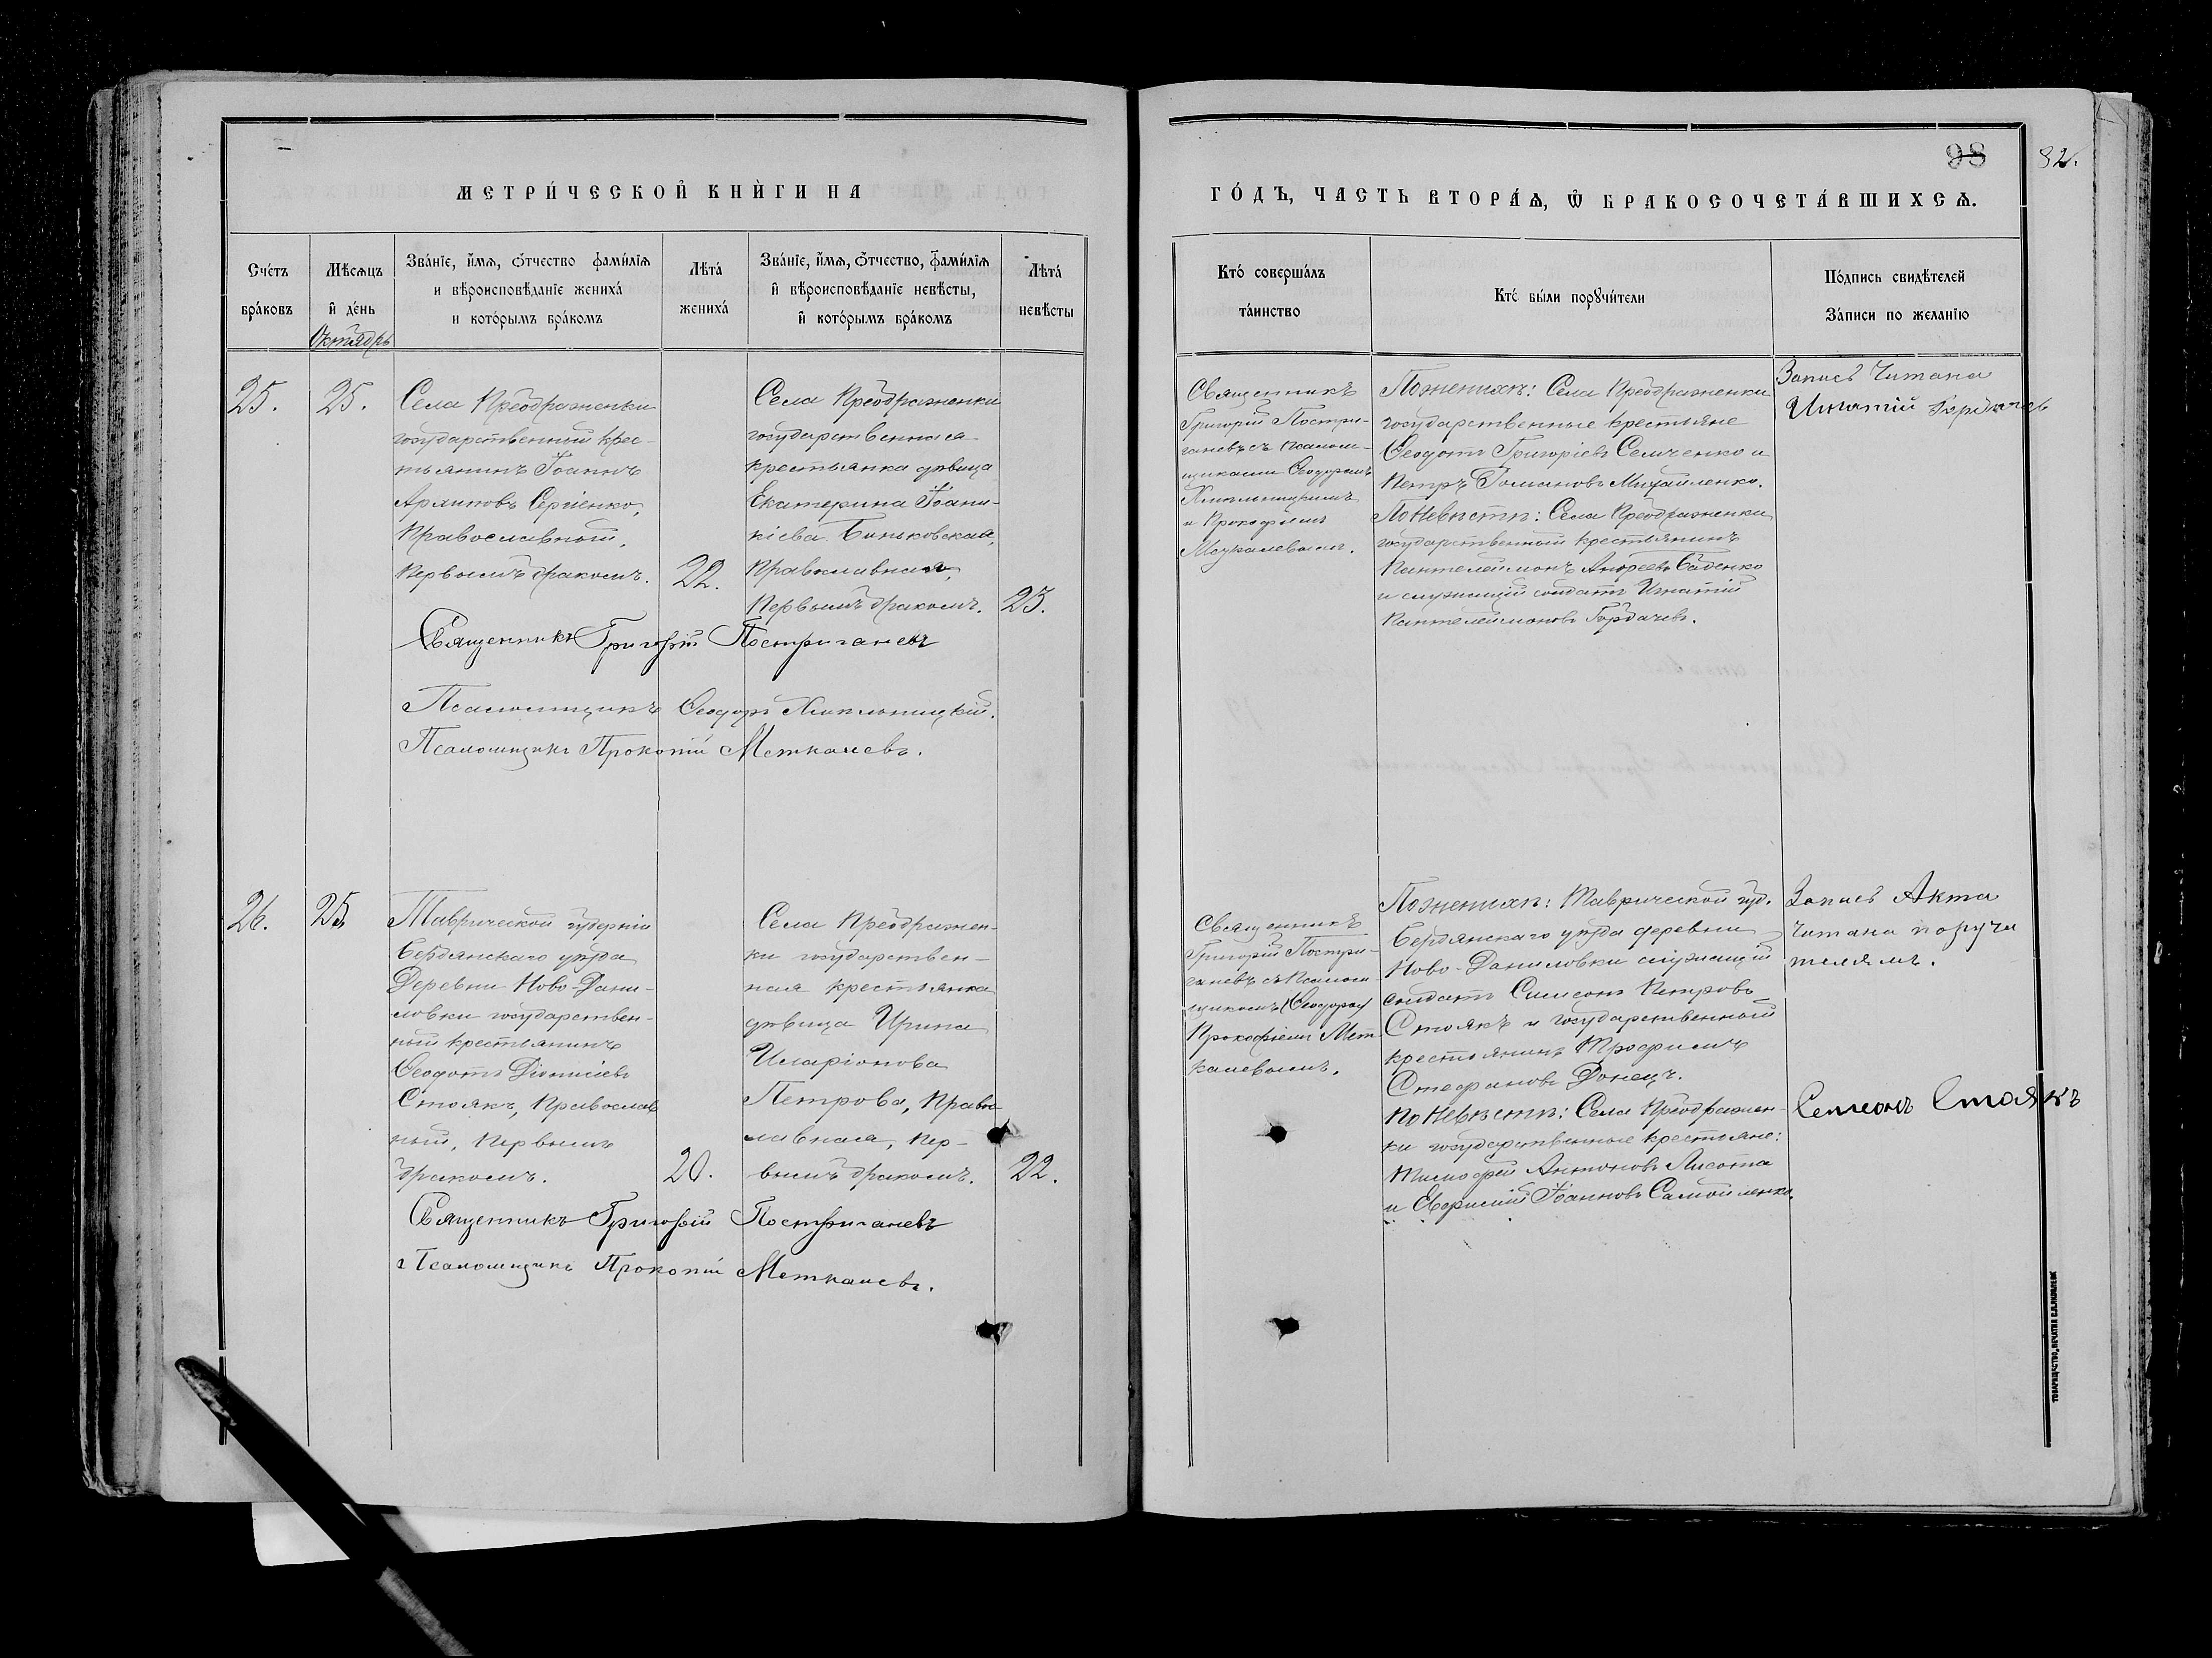 МЕТРИ́ЧЕСКОЙ КНИ́ГИ НА
Сче́тъ бра́ковъ
Мѣсѧцъ и҆ де́нь
Октябрь
Зва́нїе, и҆́мѧ, ѻ҆́тчество фами́лїѧ
и вѣроисповѣ́данїе жениха́
и кото́рымъ бра́комъ
Лѣта́ жениха́
Зва́нїе, и҆́мѧ, ѻ҆́тчество, фами́лїѧ
и҆ вѣроисповѣ́данїе невѣ́сты,
и҆ кото́рымъ бра́комъ
Лѣта́ невѣ́сты
25.
25.
Села Преображенки
государственный крес-
тьянинъ Іоаннъ
Архиповъ Сергіенко,
Православный,
первымъ бракомъ.
22.
Села Преображенки
государственная
крестьянка дѣвица
Екатерина Іоанни-
кіева Баньковская,
Православная,
первымъ бракомъ.
23.
Священникъ Григорій Постригачевъ
Псаломщикъ Ѳеодоръ Хмельницкій.
Псаломщикъ Прокопій Меткалевъ.
26.
25.
Таврической губерніи
Бердянскаго уѣзда
Деревни Ново-Дани-
ловки государствен-
ный крестьянинъ
Ѳеодотъ Діонисіевъ
Стоякъ, Православ
ный, первымъ
бракомъ.
20.
Села Преображен-
ки государствен-
ная крестьянка
дѣвица Ирина
Иларіонова
Петрова, Право
славная, пер-
вымъ бракомъ.
22.
Священникъ Григорій Постригачевъ
Псаломщикъ Прокопій Меткалевъ.
98
82.
ГО́ДЪ, ЧАСТЬ ВТОРА́Ѧ, Ѽ БРАКОСОЧЕТА́ВШИХСѦ.
Кто̀ соверша́лъ
та́инство
Кто̀ бы́ли порꙋчи́тели
По́дпись свидѣ́телей
За́писи по жела́нїю
Священникъ
Григорій Постри-
гачевъ съ псалом-
щиками Ѳеодоромъ
Хмельницкимъ
и Прокофіемъ
Меткалевымъ.
По женихѣ: Села Преображенки
государственные крестьяне
Ѳеодотъ Григоріевъ Семченко и
Петръ Романовъ Михайленко.
По Невѣстѣ: Села Преображенки
государственный крестьянинъ
Пантелеймонъ Андреевъ Баденко
и служащій солдатъ Игнатій
Пантелеймоновъ Горбачевъ.
Запись Читана
Игнатій Горбачевъ
Священникъ
Григорій Постри-
гачевъ съ Псалом-
щикомъ (Ѳеодоръ)
Прокофіемъ Мет
калевымъ.
По женихѣ: Таврической губ.
Бердянскаго уѣзда деревни
Ново-Даниловки служащій
солдатъ Симеонъ Петровъ
Стоякъ и государственный
крестьянинъ Трофимъ
Стефановъ Донецъ.
По Невѣстѣ: Села Преображен-
ки государственные крестьяне:
Тимофей Антоновъ Лисота
и Евфимій Іоанновъ Самойленко.
Запись Акта
Читана поручи
телямъ.
Семеонъ Стоякъ